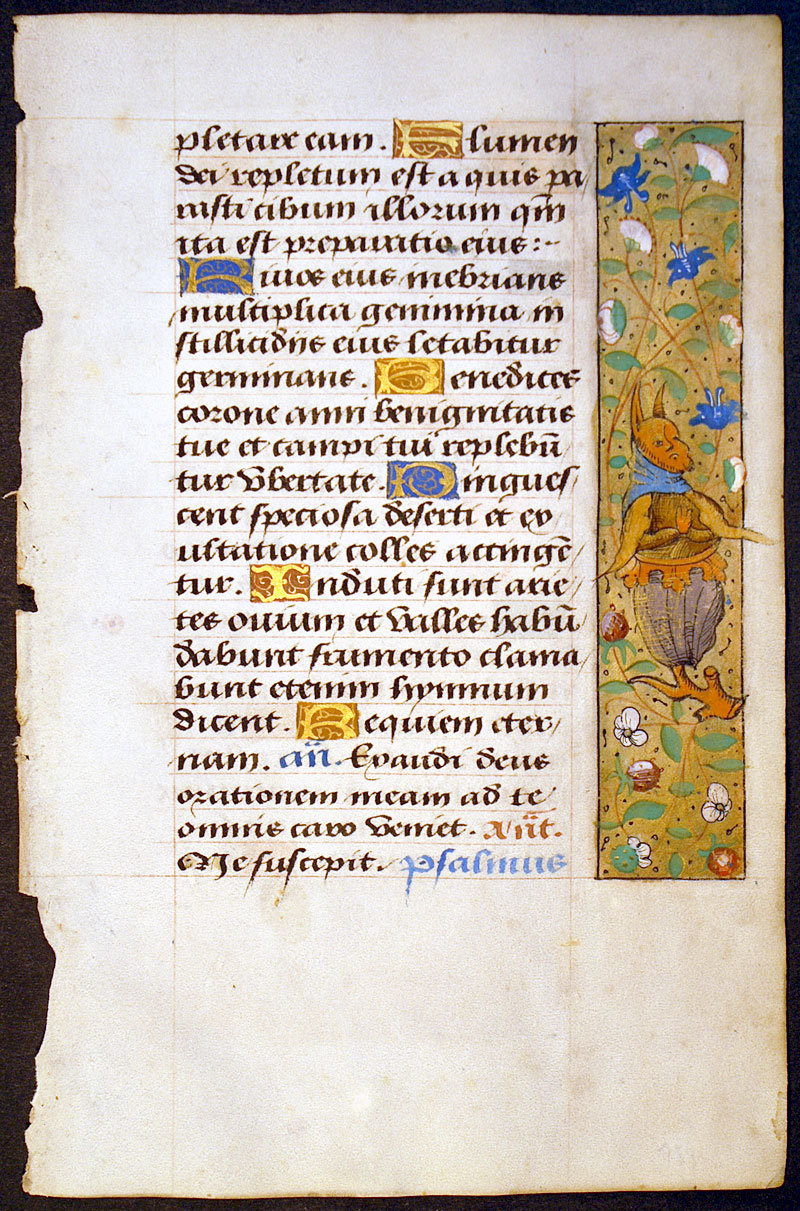 pletare eam. Flumen
dei repletum est aquis pa
rasti cibum illorum qm̄
ita est preparatio eius:~
Riuos eius inebrians
multiplica genimina in
stillicidiis eius letabitur
germinans. Benedices
corone anni benignitatis
tue et campi tui replebū/
tur vbertate. Pingues/
cent speciosa deserti et ex
ultatione colles accingē/
tur. Induti sunt arie/
tes ouium et valles habū/
dabunt frumento clama/
bunt etenim hymnum
dicent. Requiem eter/
nam. an̄. Exaudi deus
orationem meam ad te/
omnis caro veniet. Añt.
Me suscepit. psalmus